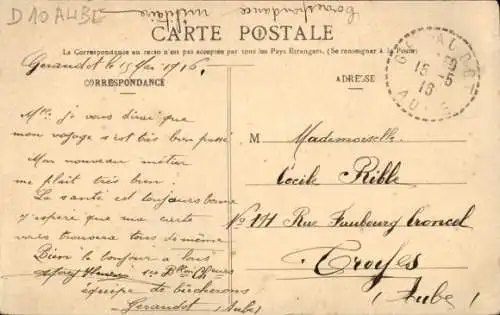 D 10 AUBE
Correspondance
militaire
CARTE POSTALE
La Correspondance au recto n'est pas acceptée par tous les Pays Etrangers. (Se renseigner à la Poste)
Géraudot le 15 Mai 1916.
CORRESPONDANCE
ADRESSE
15 -5
16
AUBE
Mlle je vous dirai que
mon voyage s'est très bien passé
Mon nouveau métier
me plait très bien
La santé est toujours bonne
j'espère que ma carte
vous trouvera tous de même
Bien le bonjour à tous
équipe de bûcherons
Géraudot (Aube)
M Mademoiselle
Cécile Rible
No 141 Rue Faubourg Croncel
Troyes
(Aube)